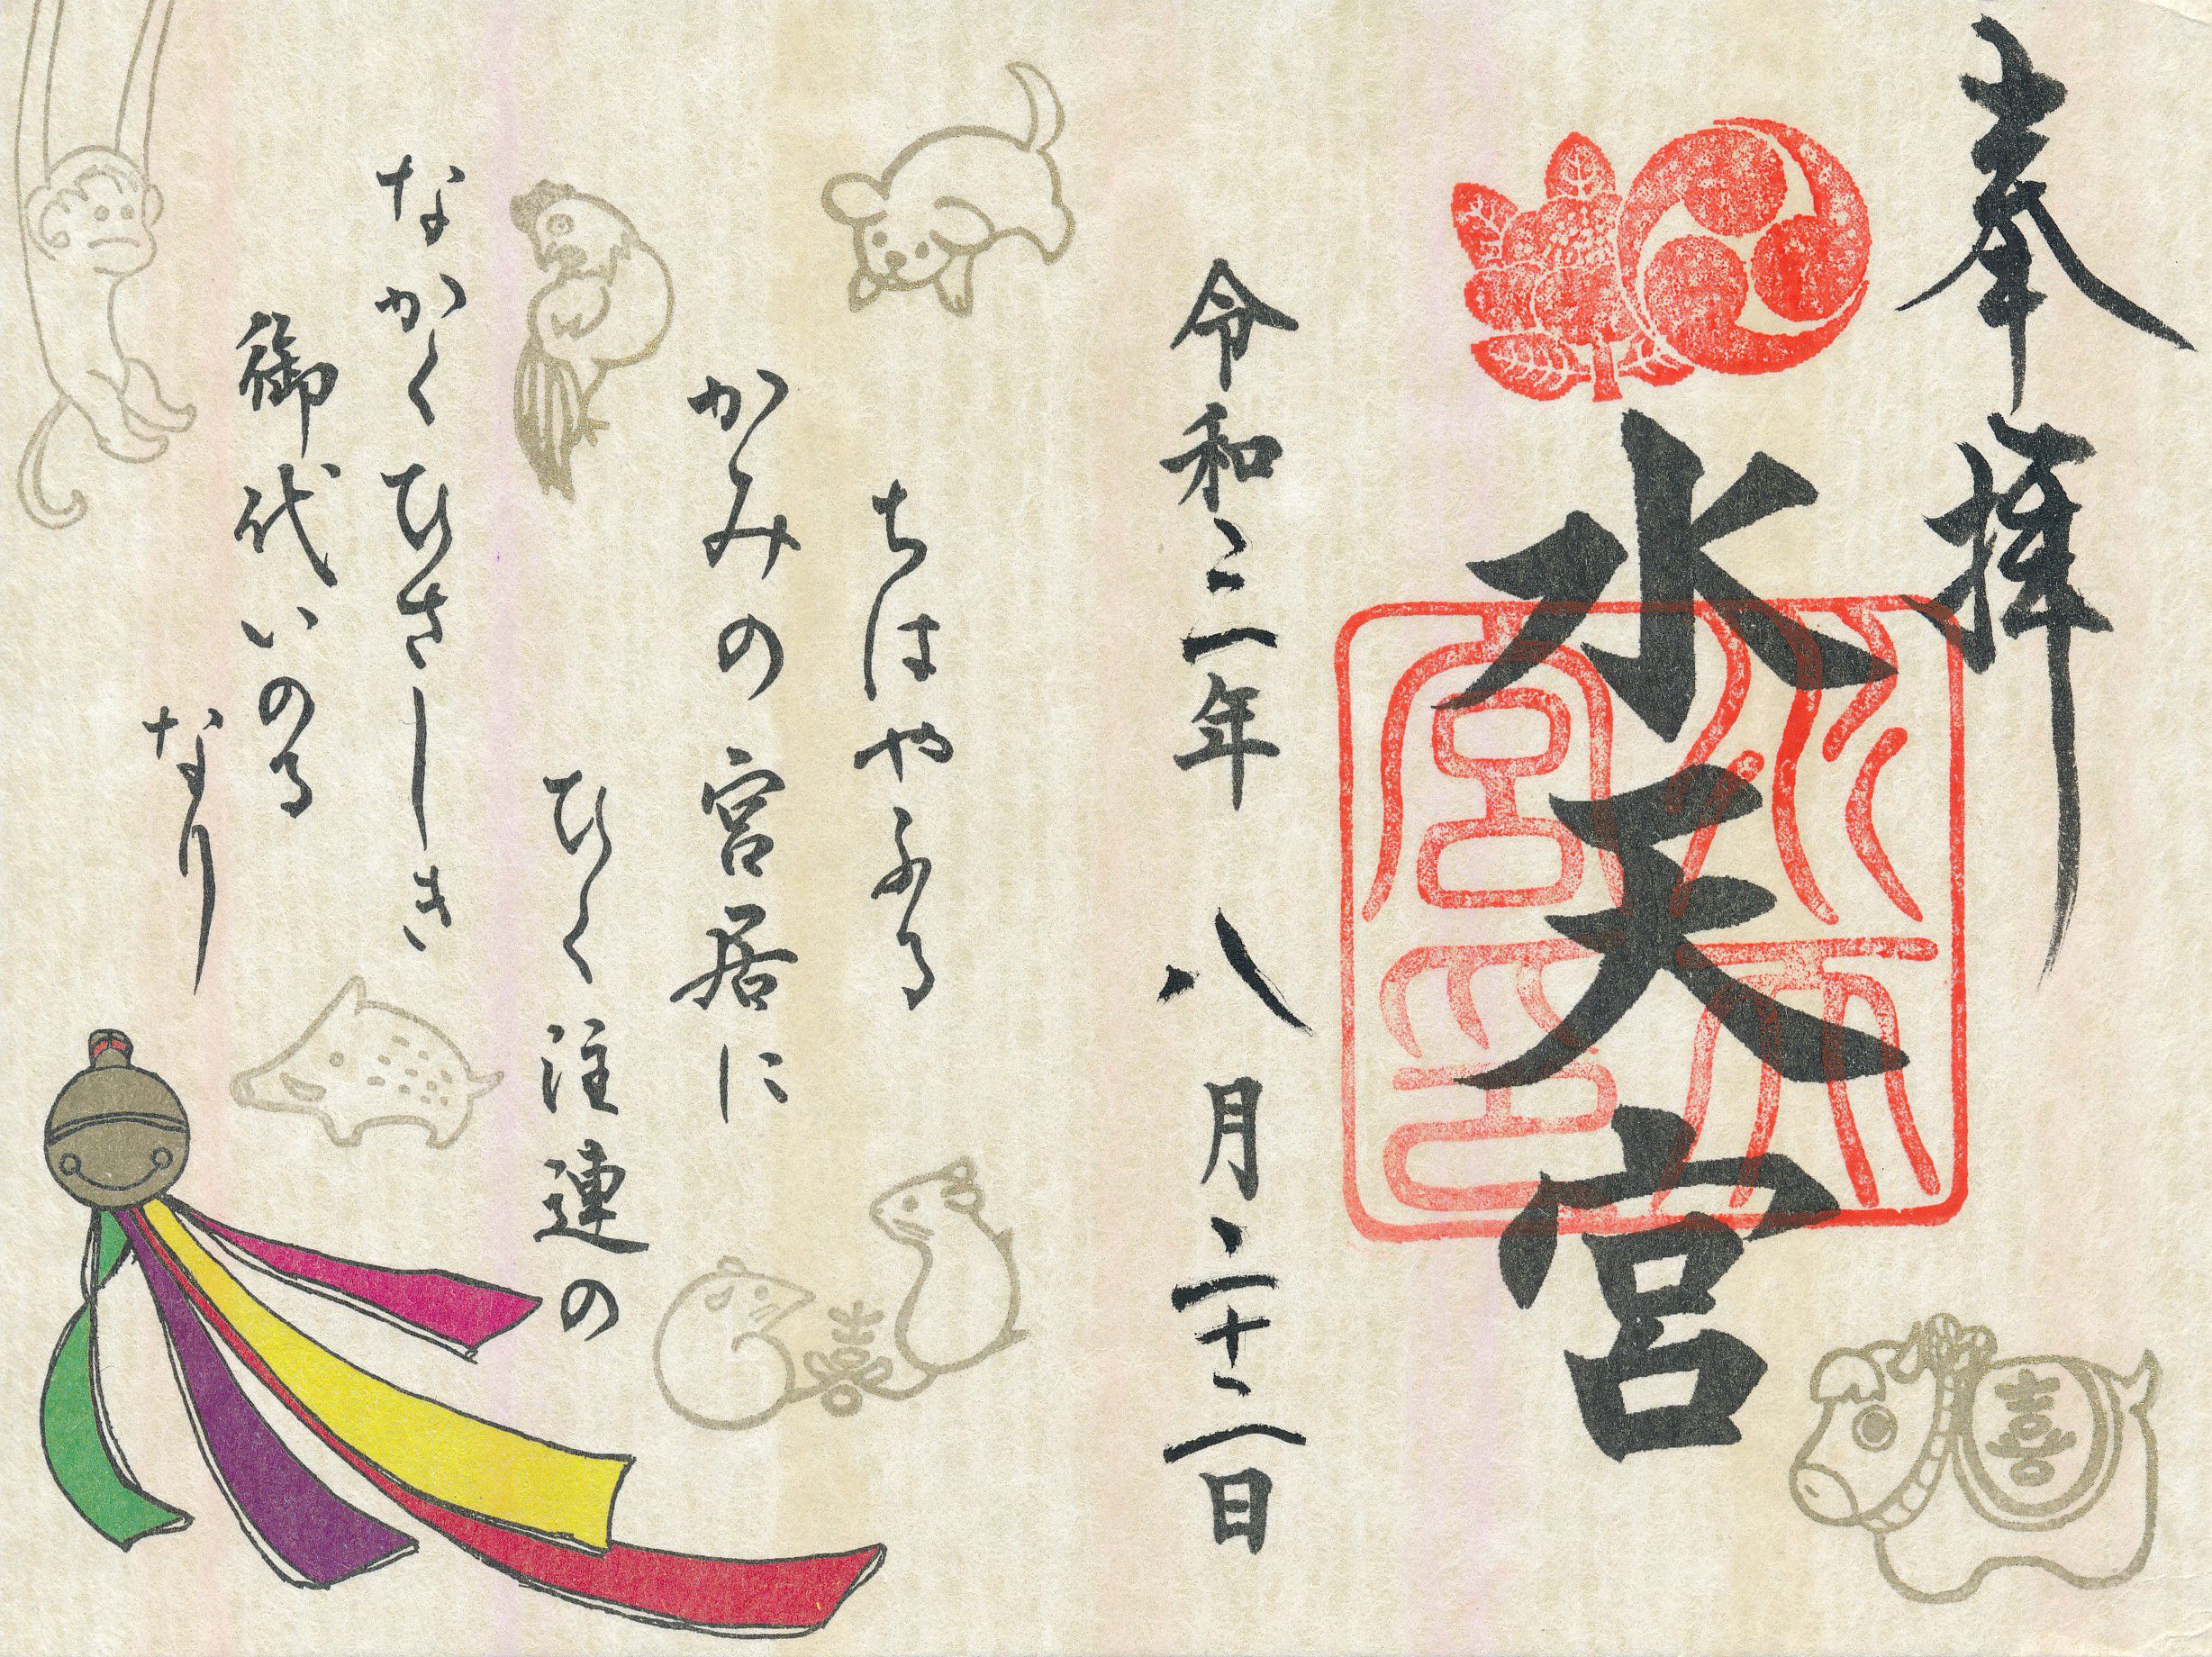 奉拝
水天宮
水天宮印
喜
令和三年八月二十二日
ちはやふる
かみの宮居に
ひく注連の
なかくひさしき
御代いのる
なり
喜